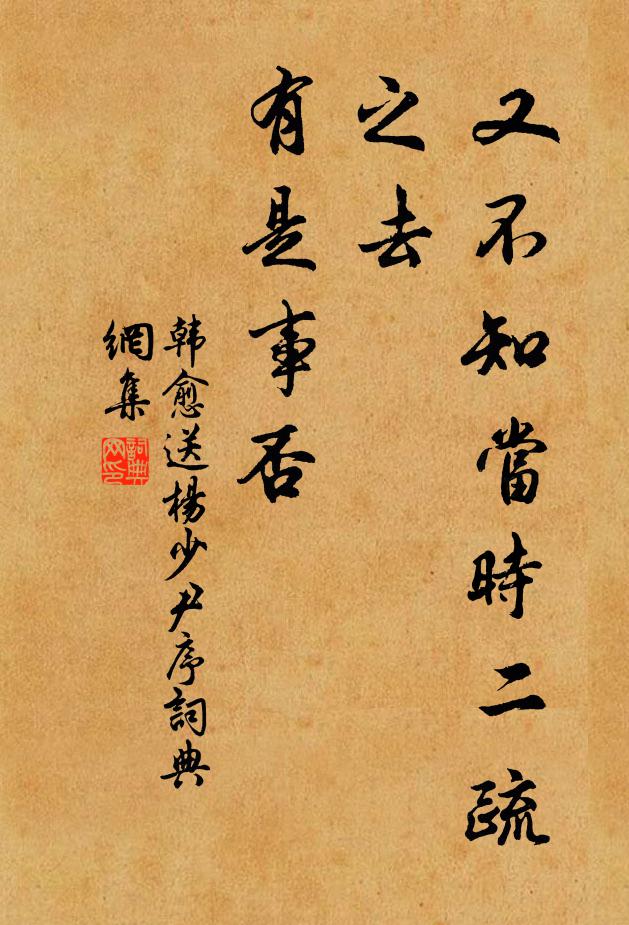 又不知當時二疏
之去
有是事否
韩愈送楊少尹序詞典
網集
詞典
网印